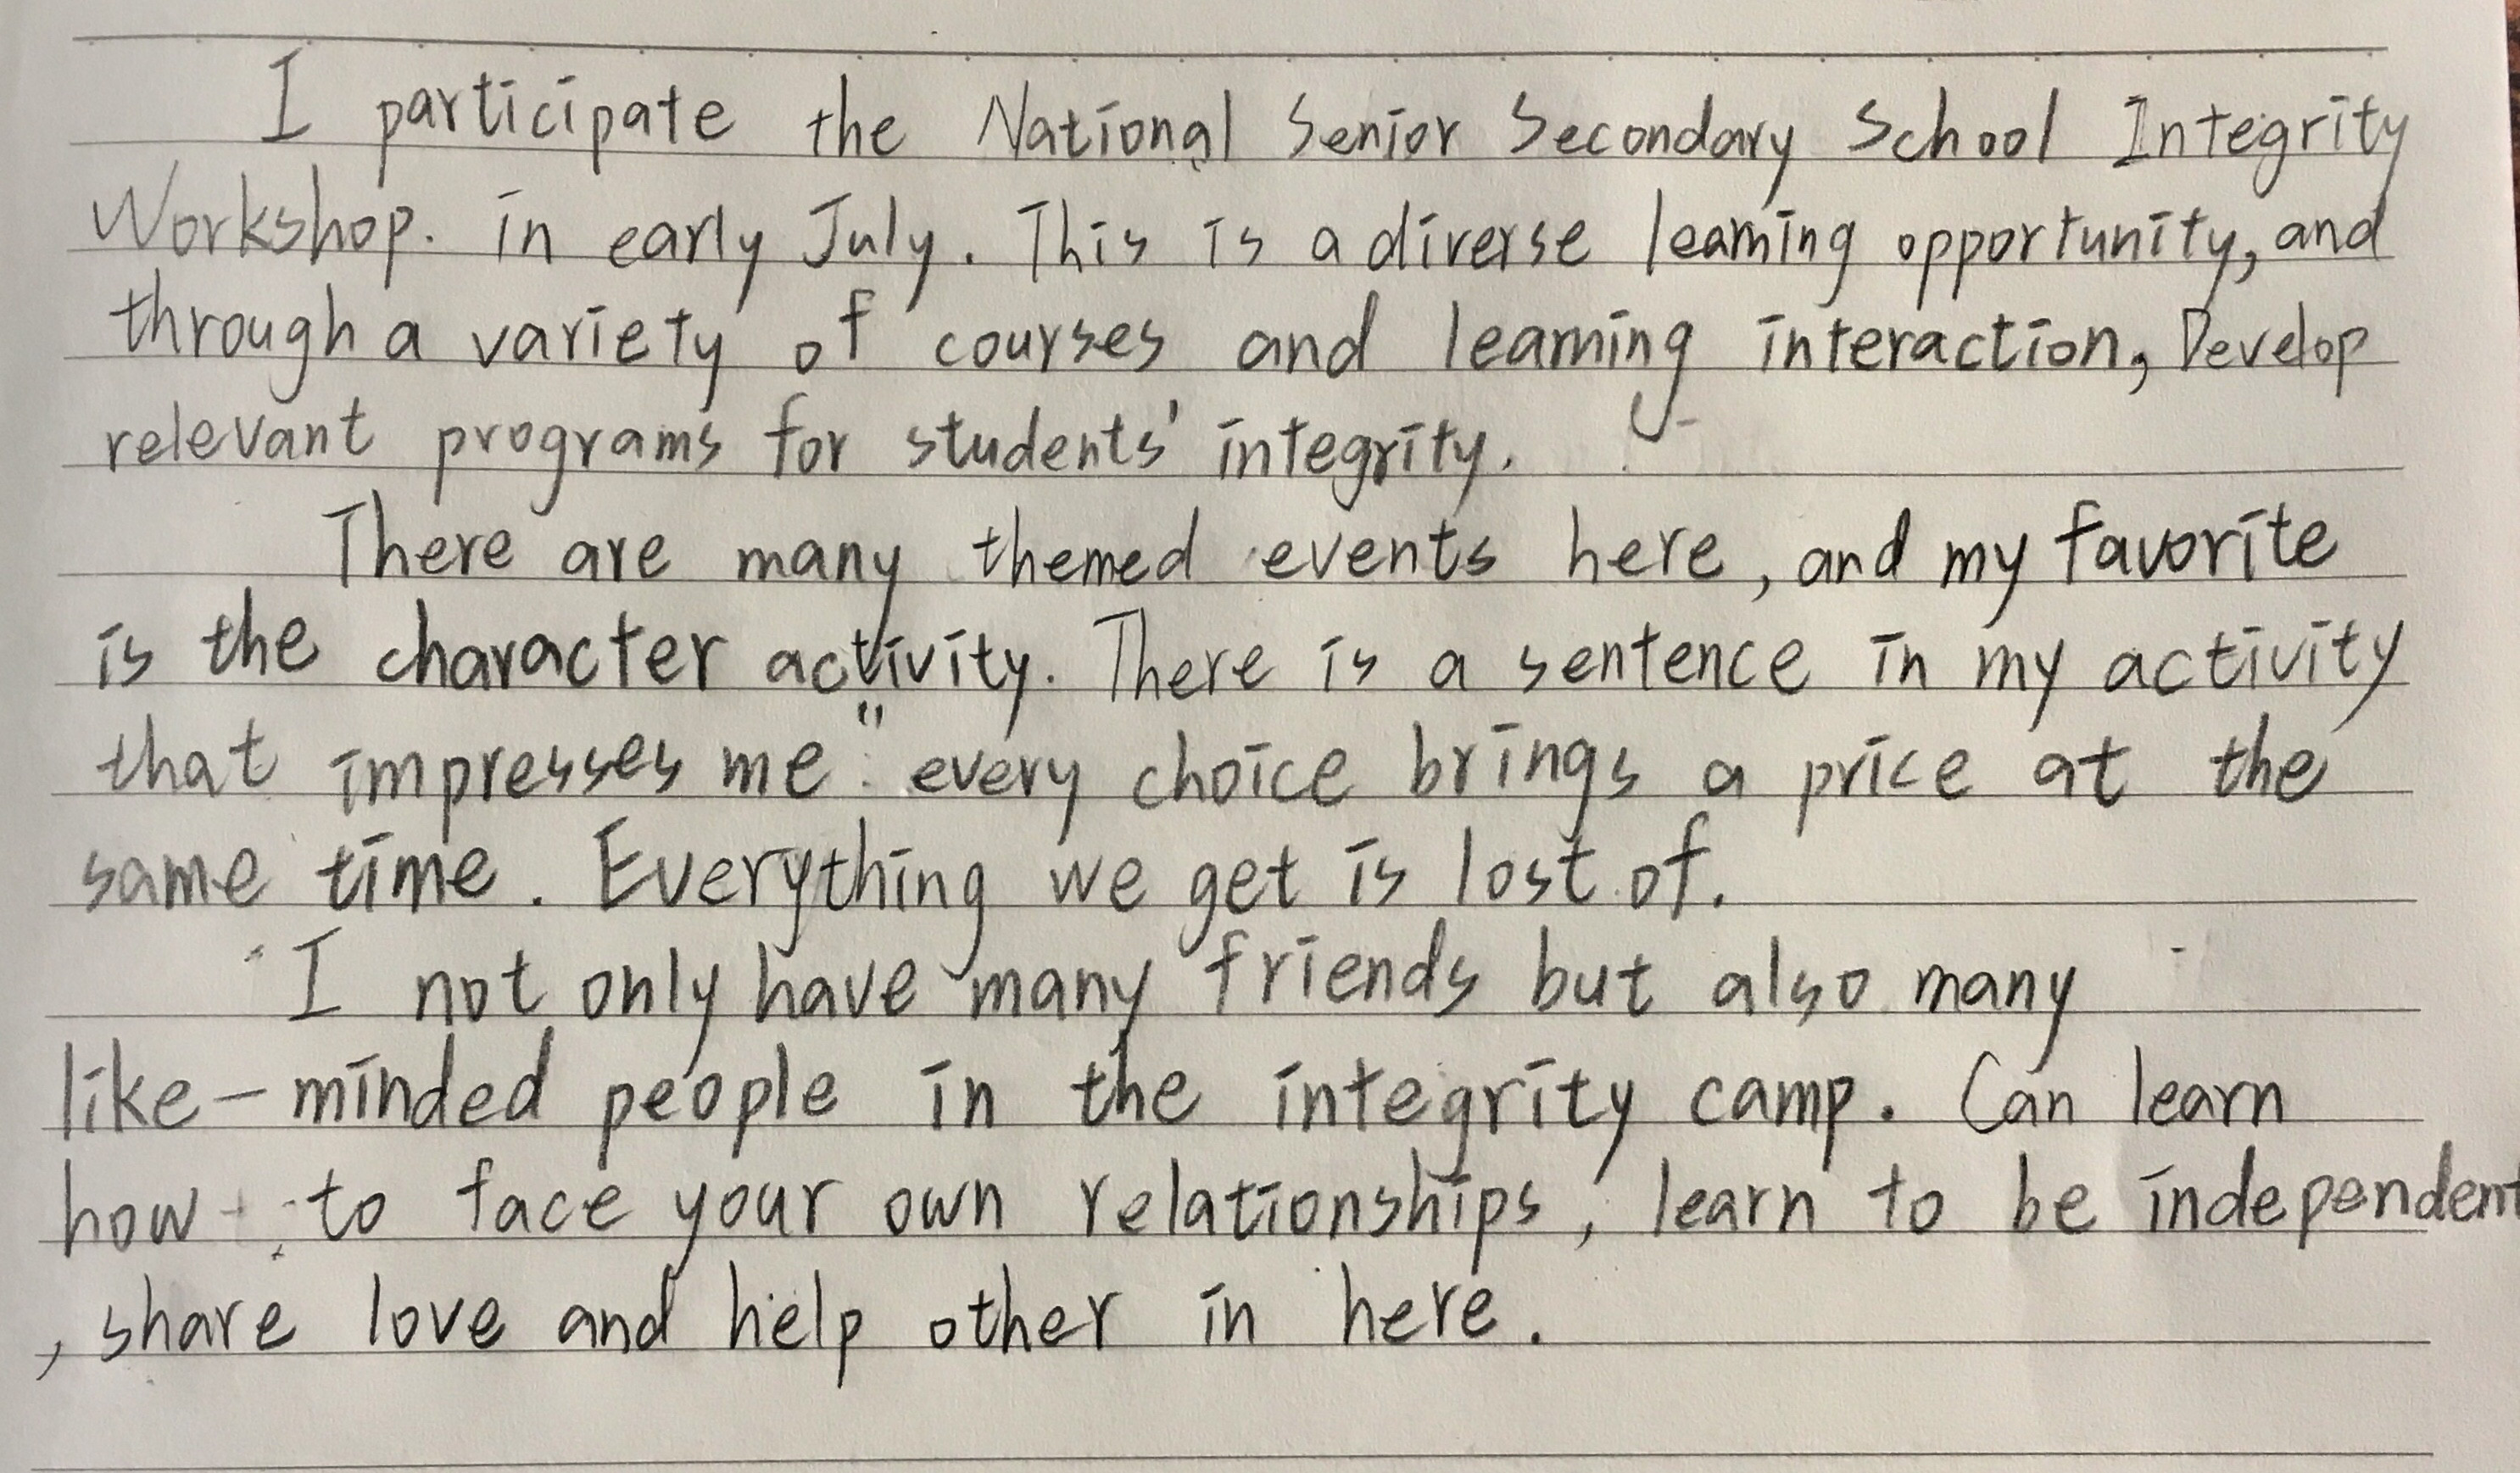 I participate the National Senior Secondary School Integrity
Workshop. in early July. This is a diverse learning opportunity, and
through a variety of courses and learning interaction, Develop
relevant programs for students' integrity.
There are many themed events here, and my favorite
is the character activity. There is a sentence in my activity
that impresses me " every choice brings a price at the
same time. Everything we get is lost of.
I not only have many friends but also many
like-minded people in the integrity camp. Can learn
how to face your own relationships, learn to be independent
, share love and help other in here.